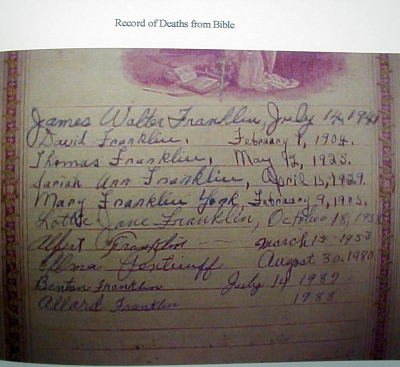 Record of Deaths from Bible
James Walter Franklin, July 14, 1941
David Franklin, February 1, 1904.
Thomas Franklin, May 12, 1923.
Sariah Ann Franklin, April 15, 1929.
Mary Franklin York, February 9, 1935.
Lottie Jane Franklin, October 18, 195
Albert Franklin — March 13 - 1953
Ellma August 30. 1980
Benton Franklin July 14 1987
Allard Franklin 1988